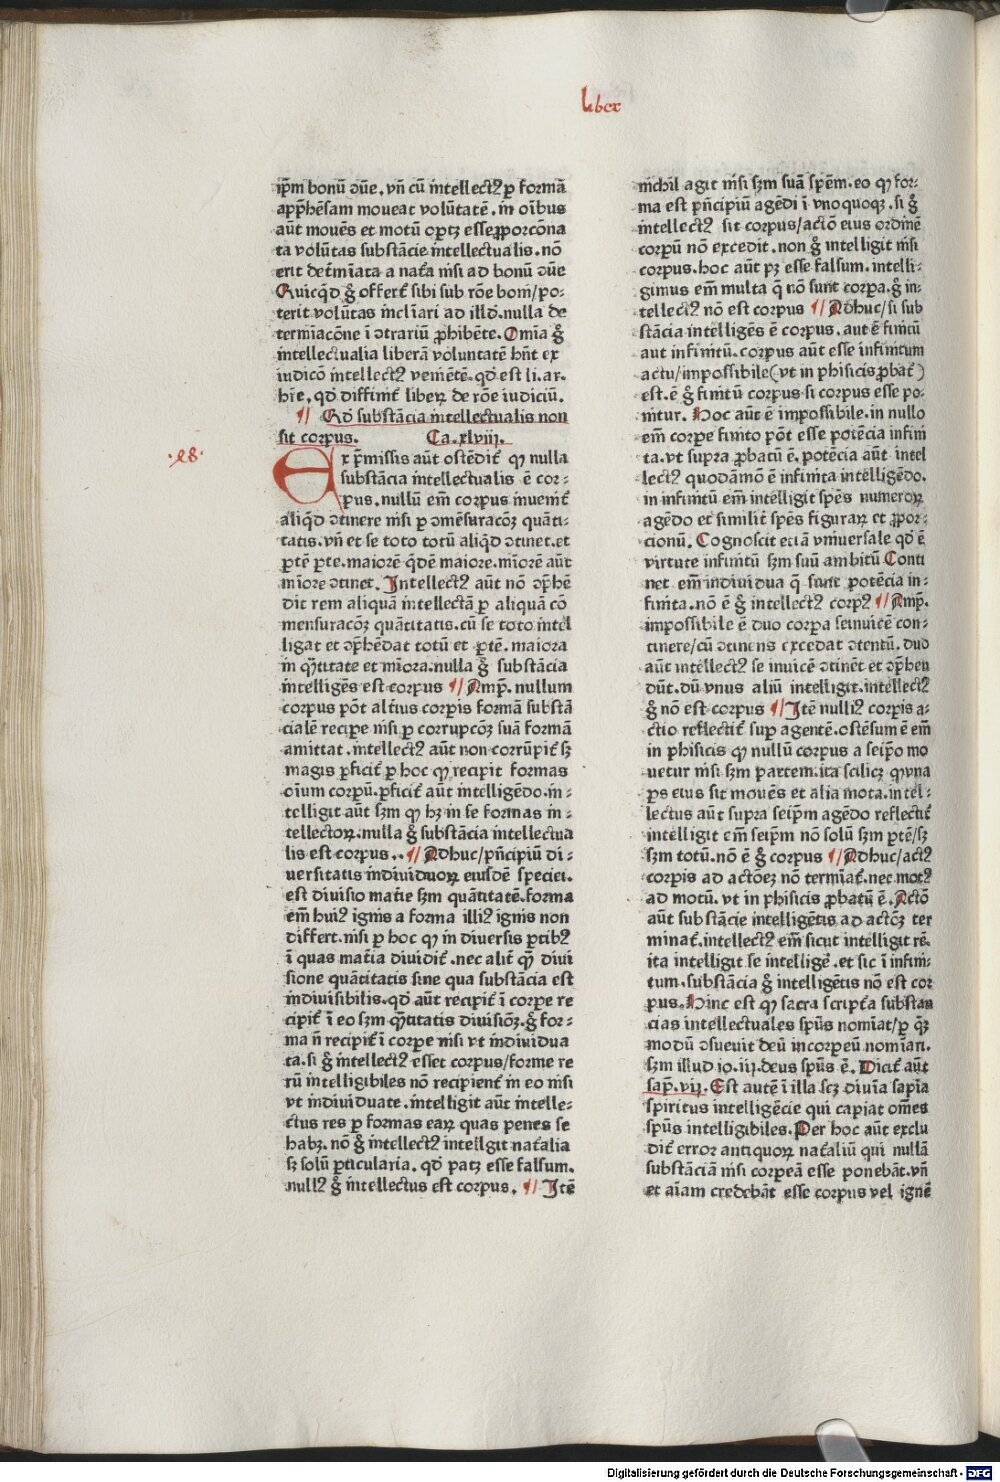 Liber
ip̄m bonū ↄūe. vn̄ cū intellectꝰ ꝑ formā
apꝓhēsam moueat volūtatē. in oībus
aūt mouēs et motū oꝑtꝫ esse ꝓporcōna
ta volūtas substācie intellectualis. nō
erit det̄mīata a nat̄a nisi ad bonū ↄūe
Quicq̄d g̊ offert̄ sibi sub rōe boni/po⸗
terit volūtas inclīari ad illd̄. nulla de
termīacōne ī ↄtrariū ꝓhibēte. Omīa g̊
intellectualia liberā voluntatē hn̄t ex
iudicō intellectꝰ veniētē. qd̄ est li. ar⸗
br̄e. qd̄ diffinit̄ liberꝝ de rōe iudiciū.
¶ Qd̄ substācia intellectualis non
sit corpus. Ca. xlviij.
·48·
Ex p̄missis aūt ostēdit̄ ꝙ nulla
substācia intellectualis ē cor⸗
pus. nullū em̄ corpus inuenit̄
aliq̄d ↄtinere nisi ꝑ ↄmēsuracōꝫ quāti⸗
tatis. vn̄ et se toto totū aliq̄d ↄtinet. et
ꝑtē ꝑte. maiorē q̄dē maiore. mīorē aūt
mīore ↄtinet. Intellectꝰ aūt nō ↄp̄hē
dit rem aliquā intellectā ꝑ aliquā cō
mensuracōꝫ quātitatis. cū se toto intel
ligat et ↄp̄hēdat totū et ꝑtē. maiora
in q̄titate et mīora. nulla g̊ substācia
intelligēs est corpus ¶ Amp̄. nullum
corpus pōt altius corpis formā substā
cialē recipe nisi ꝑ corrupcōꝫ suā formā
amittat. intellectꝰ aūt non corrūpit̄ sꝫ
magis ꝑficit̄ ꝑ hoc ꝙ recipit formas
oīum corpū. ꝑficit̄ aūt intelligēdo. in⸗
telligit aūt sꝫm ꝙ hꝫ in se formas in⸗
tellectoꝝ. nulla g̊ substācia intellectua
lis est corpus.. ¶ Adhuc/pn̄cipiū di⸗
uersitatis indiuiduoꝝ eiusdē speciei.
est diuisio mat̄ie sꝫm quātitatē. forma
em̄ huiꝰ ignis a forma illiꝰ ignis non
differt. nisi ꝑ hoc ꝙ in diuersis ꝑtibꝰ
ī quas mat̄ia diuidit̄. nec alit̄ q̄ꝫ diui
sione quātitatis sine qua substācia est
indiuisibilis. qd̄ aūt recipit̄ ī corpe re
cipit̄ ī eo sꝫm q̄titatis diuisiōꝫ. g̊ for⸗
ma n̄ recipit̄ ī corpe nisi vt indiuidua
ta. si g̊ intellectꝰ esset corpus/forme re
rū intelligibiles nō recipient̄ in eo nisi
vt indiuiduate. intelligit aūt intelle⸗
ctus res ꝑ formas eaꝝ quas penes se
habꝫ. nō g̊ intellectꝰ intellgit nat̄alia
sꝫ solū ꝑticularia. qd̄ patꝫ esse falsum.
nullꝰ g̊ intellectus est corpus. ¶ Itē
nichil agit nisi sꝫm suā spēm. eo ꝙ for⸗
ma est pn̄cipiū agēdi ī vnoquoqꝫ. si g̊
intellectꝰ sit corpus/actō eius ordinē
corpū nō excedit. non g̊ intelligit nisi
corpus. hoc aūt pꝫ esse falsum. intelli⸗
gimus em̄ multa q̄ nō sunt corpa. g̊ in⸗
tellectꝰ nō est corpus ¶ Adhuc/si sub
stācia intelligēs ē corpus. aut ē finitū
aut infinitū. corpus aūt esse infinitum
actu/impossibile (vt in phisicis ꝓbat̄)
est. ē g̊ finitū corpus si corpus esse po⸗
nitur. Hoc aūt ē impossibile. in nullo
em̄ corpe finito pōt esse potēcia infini
ta. vt supra ꝓbatū ē. potēcia aūt intel
lectꝰ quodāmō ē infinita intelligēdo.
in infinitū em̄ intelligit spēs numeroꝝ
agēdo et similit̄ spēs figuraꝝ et ꝓpor⸗
cionū. Cognoscit eciā vniuersale qd̄ ē
virtute infinitū sꝫm suū ambitū Conti
net em̄ indiuidua q̄ sunt potēcia in⸗
finita. nō ē g̊ intellectꝰ corpꝰ ¶ Amp̄.
impossibile ē duo corpa seinuicē con⸗
tinere/cū ↄtinens excedat ↄtentū. duo
aūt intellectꝰ se inuicē ↄtinēt et ↄp̄hen
dūt. dū vnus aliū intelligit. intellectꝰ
g̊ nō est corpus ¶ Itē nulliꝰ corpis a⸗
ctio reflectit̄ suꝑ agentē. ostēsum ē em̄
in phisicis ꝙ nullū corpus a seip̄o mo
uetur nisi sꝫm partem. ita scilicꝫ ꝙ vna
ꝑs eius sit mouēs et alia mota. intel⸗
lectus aūt supra seip̄m agēdo reflectit̄
intelligit em̄ seip̄m nō solū sꝫm ꝑtē/sꝫ
sꝫm totū. nō ē g̊ corpus ¶ Adhuc/actꝰ
corpis ad actōeꝫ nō termīat̄. nec motꝰ
ad motū. vt in phisicis ꝓbatū ē. Actō
aūt substācie intelligētis ad actōꝫ ter
minat̄. intellectꝰ em̄ sicut intelligit rē.
ita intelligit se intelligē. et sic ī infini⸗
tum. substācia g̊ intelligētis nō est cor
pus. Hinc est ꝙ sacra script̄a substan
cias intellectuales spūs nomīat/ꝑ q̄ꝫ
modū ↄsueuit deū incorpeū nomīari.
sꝫm illud io. iij. deus spūs ē. Dicit̄ aūt
sap̄. vij. Est autē ī illa scꝫ diuīa sapīa
spiritus intelligēcie qui capiat om̄es
spūs intelligibiles. Per hoc aūt exclu
dit̄ error antiquoꝝ nat̄aliū qui nullā
substāciā nisi corpeā esse ponebāt. vn̄
et aīam credebāt esse corpus vel ignē
Digitalisierung gefördert durch die Deutsche Forschungsgemeinschaft - DFG